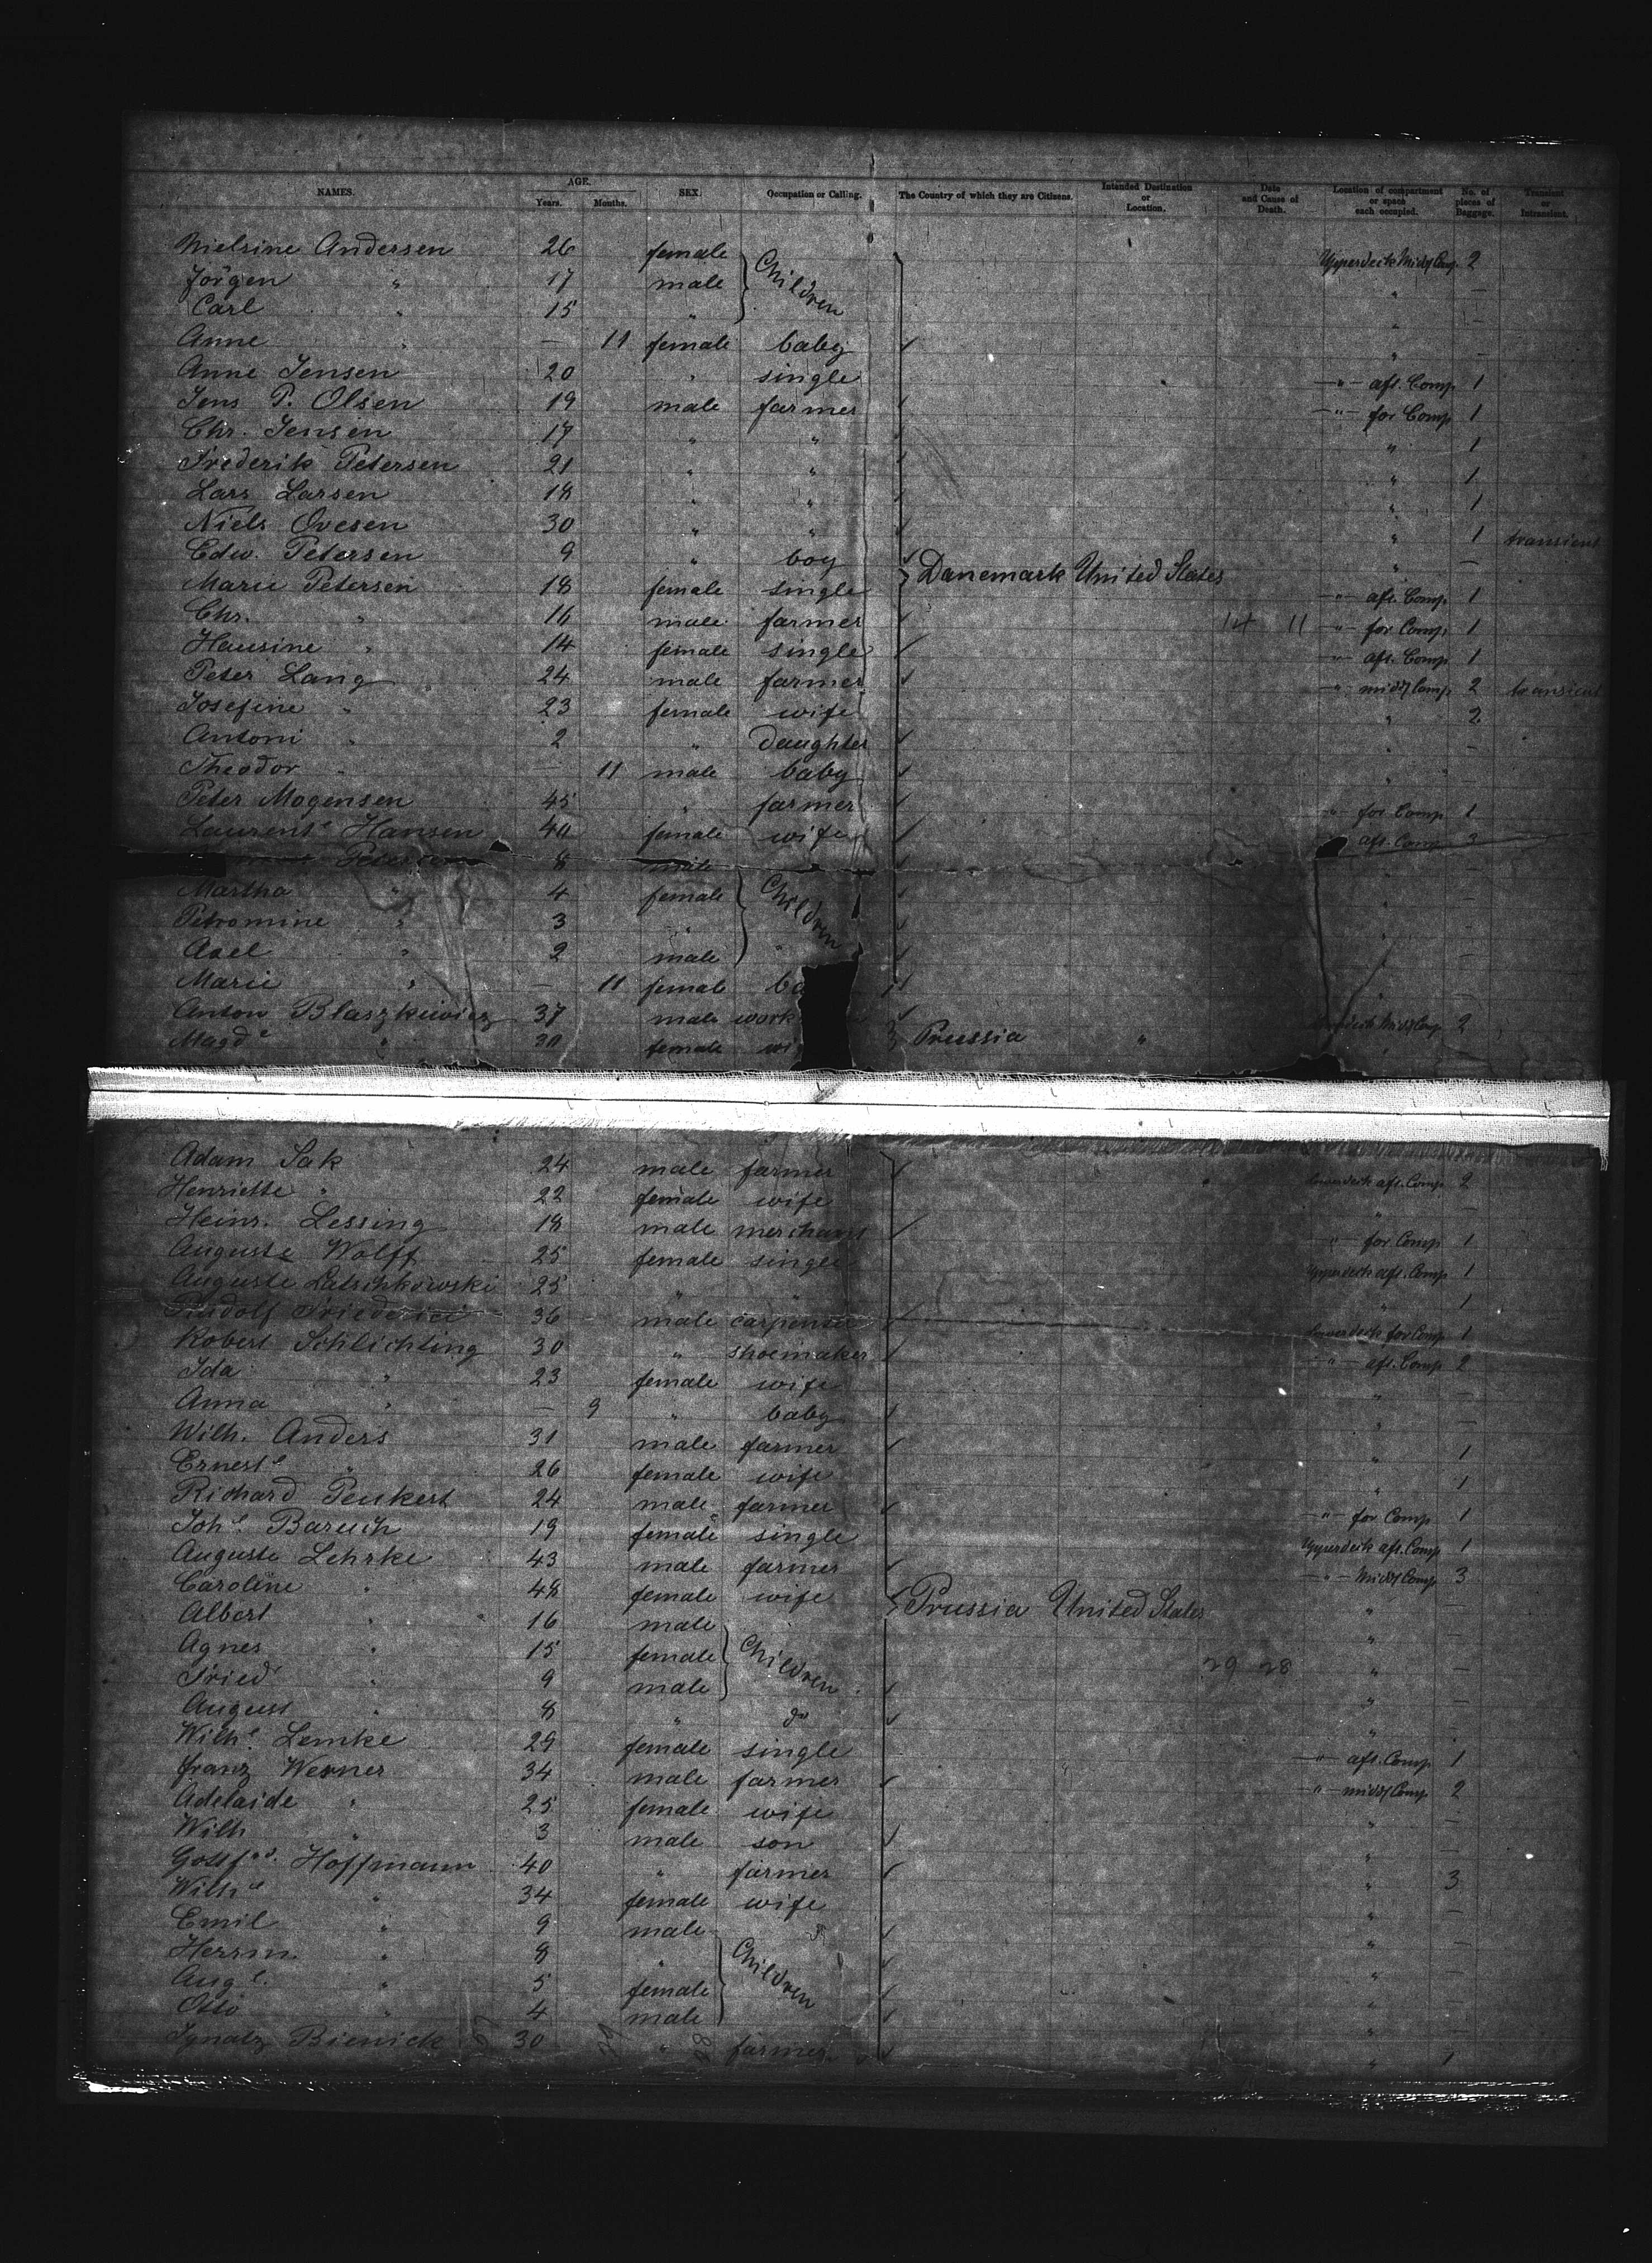 NAMES. AGE. Years. Months. SEX. Occupation or Calling. The Country of which they are Citizens. Intended Destination or Location. Date and Cause of Death. Location of compartment or space each occupied. No. of pieces of Baggage. Transient or Intransient.
Nielsine Andersen 26 female Upperdeck Midd Comp. 2
Jörgen " 17 male Children " —
Carl " 15 " " —
Anne " — 11 female baby " —
Anne Jensen 20 " single —"— aft. Comp. 1
Jens P. Olsen 19 male farmer —"— for Comp 1
Chr. Jensen 17 " " " 1
Frederik Petersen 21 " " " 1
Lars Larsen 18 " " " 1
Niels Ovesen 30 " " " 1 transient
Edw. Petersen 9 " boy " —
Marie Petersen 18 female single Danemark United States —"— aft. Comp. 1
Chr. " 16 male farmer 14 11 —"— for Comp. 1
Hansine " 14 female single —"— aft. Comp. 1
Peter Lang 24 male farmer —"— midd Comp. 2 transient
Josefine " 23 female wife " 2
Antoni " 2 " Daughter " —
Theodor " — 11 male baby " "
Peter Mogensen 45 " farmer —"— for Comp 1
Laurens e Hansen 40 female wife aft. Comp 3
Petersen 8 male " —
Martha " 4 female Children " —
Petromine " 3 " " —
Axel " 2 male " —
Marie " — 11 female ba "
Anton Blaszkiewicz 37 male work Midd Comp. 2
Magd e " 30 female wi Prussia "
Adam Sak 24 male farmer aft. Comp 2
Henriette " 22 female wife " —
Heinr. Lessing 18 male merchant —"— for Comp 1
Auguste Wolff 25 female single Upperdeck aft. Comp 1
Auguste Latschkowski 25 " " " 1
Rudolf Friederici 36 male carpenter for Comp 1
Robert Schlichting 30 " shoemaker —"— aft. Comp 2
Ida " 23 female wife " —
Anna " — 9 " baby " —
Wilh. Anders 31 male farmer " 1
Ernest e " 26 female wife " 1
Richard Peukert 24 male farmer —"— for Comp 1
Joh e. Baruch 19 female single Upperdeck aft. Comp 1
Auguste Lehrke 43 male farmer —"— Midd Comp 3
Caroline " 48 female wife Prussia United States " —
Albert " 16 male " —
Agnes " 15 female Children 29 28 " —
Fried " 9 male " —
August " 8 " do " —
Wilh e. Lemke 29 female single —"— aft. Comp 1
Franz Werner 34 male farmer —"— midd Comp 2
Adelaide " 25 female wife " —
Wilh " 3 male son " —
Gottf d. Hoffmann 40 " farmer " 3
Wilh e " 34 female wife " —
Emil " 9 male " —
Herrm. " 8 " Children " —
Aug e. " 5 female " —
Otto " 4 male " —
Ignatz Bienick 30 " farmer " 1